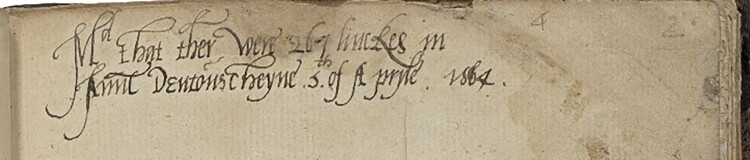 4 2
Md that ther were 267 linckes in
Denton's cheyne .5.th of Aprile . 1564 .